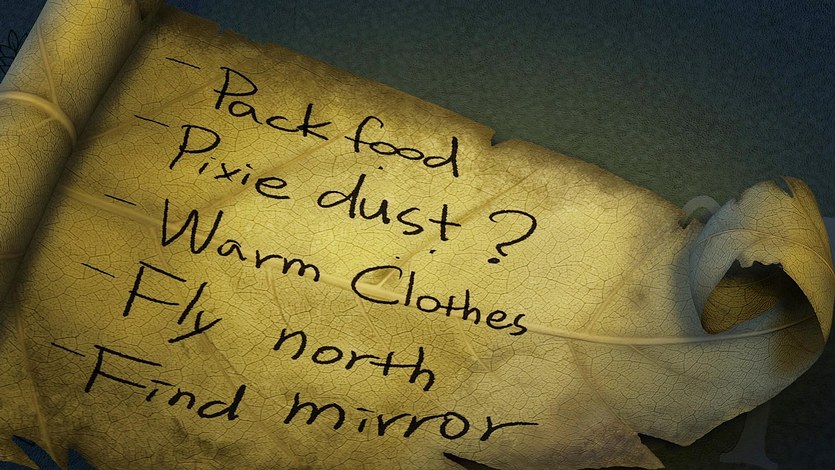 - Pack food
- Pixie dust?
- Warm Clothes
- Fly north
- Find mirror